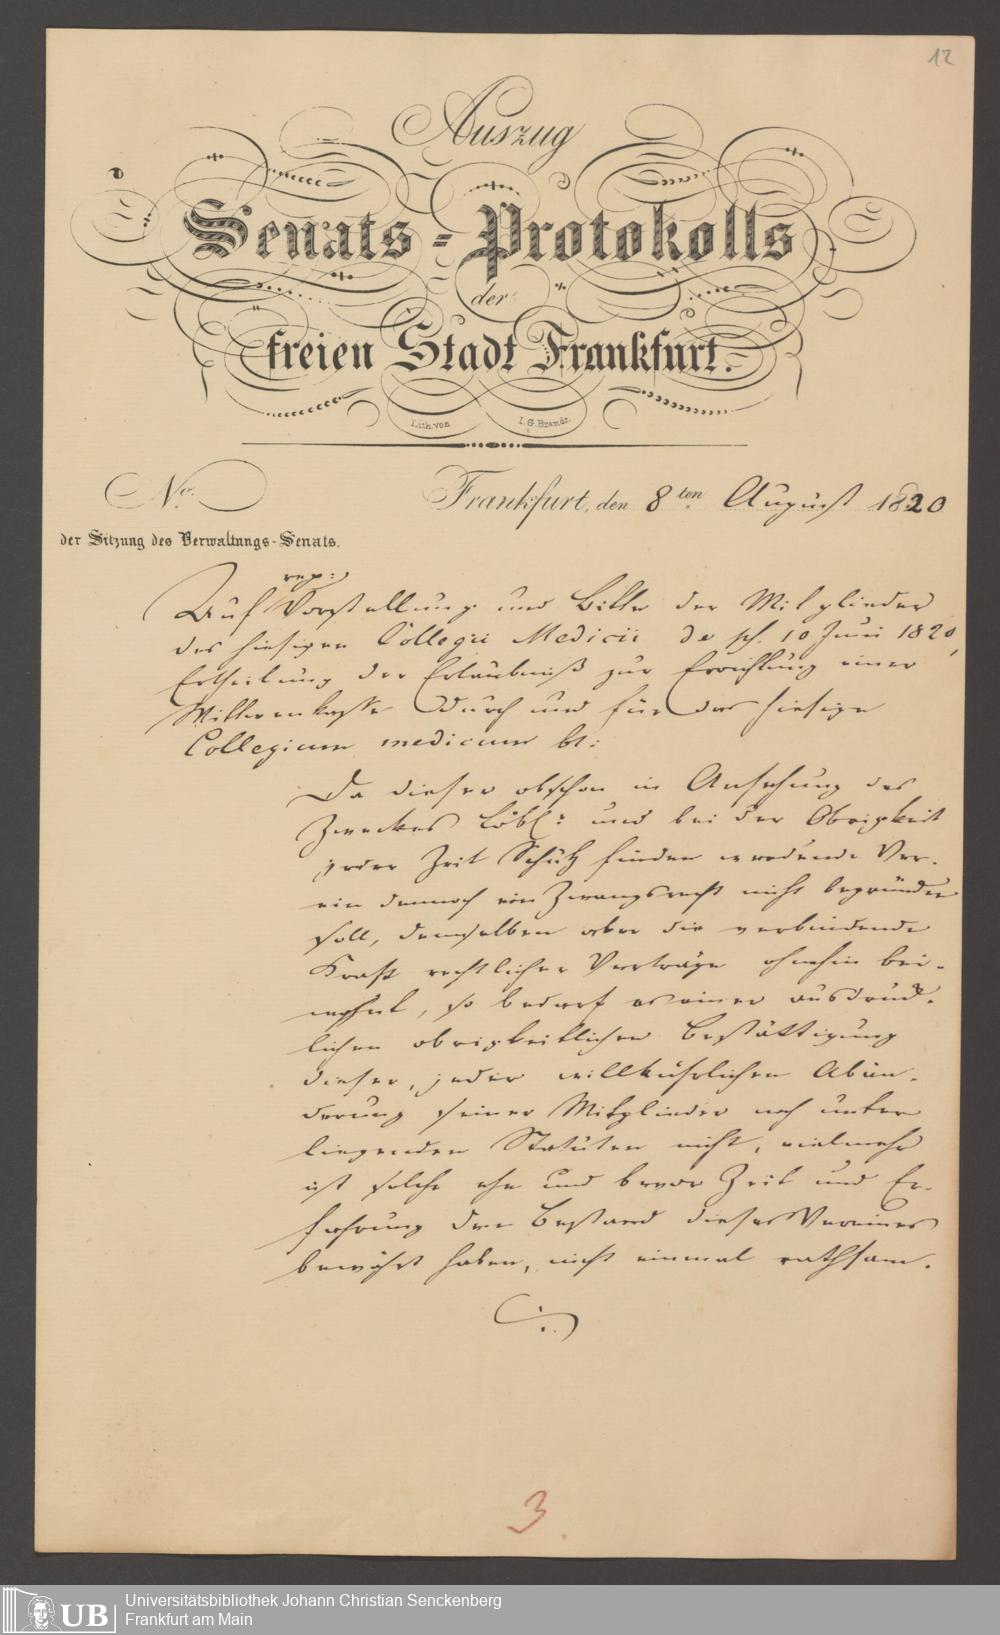 12
Auszug
Senats-Protokolls
der
freien Stadt Frankfurt.
Lith. von I. G. Brandt.
No.
Frankfurt, den 8ten August 1820
der Sitzung des Verwaltungs-Senats.
rep:
Auf Vorstellung und Bitte der Mitglieder
des hiesigen Collegii Medicii de pf. 10 Juni 1820,
Ertheilung der Erlaubniß zur Errichtung einer
Wittwenkasse durch und für das hiesige
Collegium medicum bt:
Da dieser obschon in Ansehung des
Zweckes Löbl: und bei der Obrigkeit
jeder Zeit Schutz finden werdende Ver-
ein dennoch ein Zwangsrecht nicht begründen
soll, demselben aber die verbindende
Kraft rechtlicher Verträge ohnehin bei-
wohnt, so bedarf es einer ausdrück-
lichen obrigkeitlichen Bestättigung
dieser, jeder willkührlichen Abän-
derung seiner Mitglieder noch unter
liegenden Statuten nicht, vielmehr
ist solche ehe und bevor Zeit und Er-
fahrung den Bestand dieses Vereines
bewährt haben, nicht einmal rathsam.
3
UB
Universitätsbibliothek Johann Christian Senckenberg
Frankfurt am Main